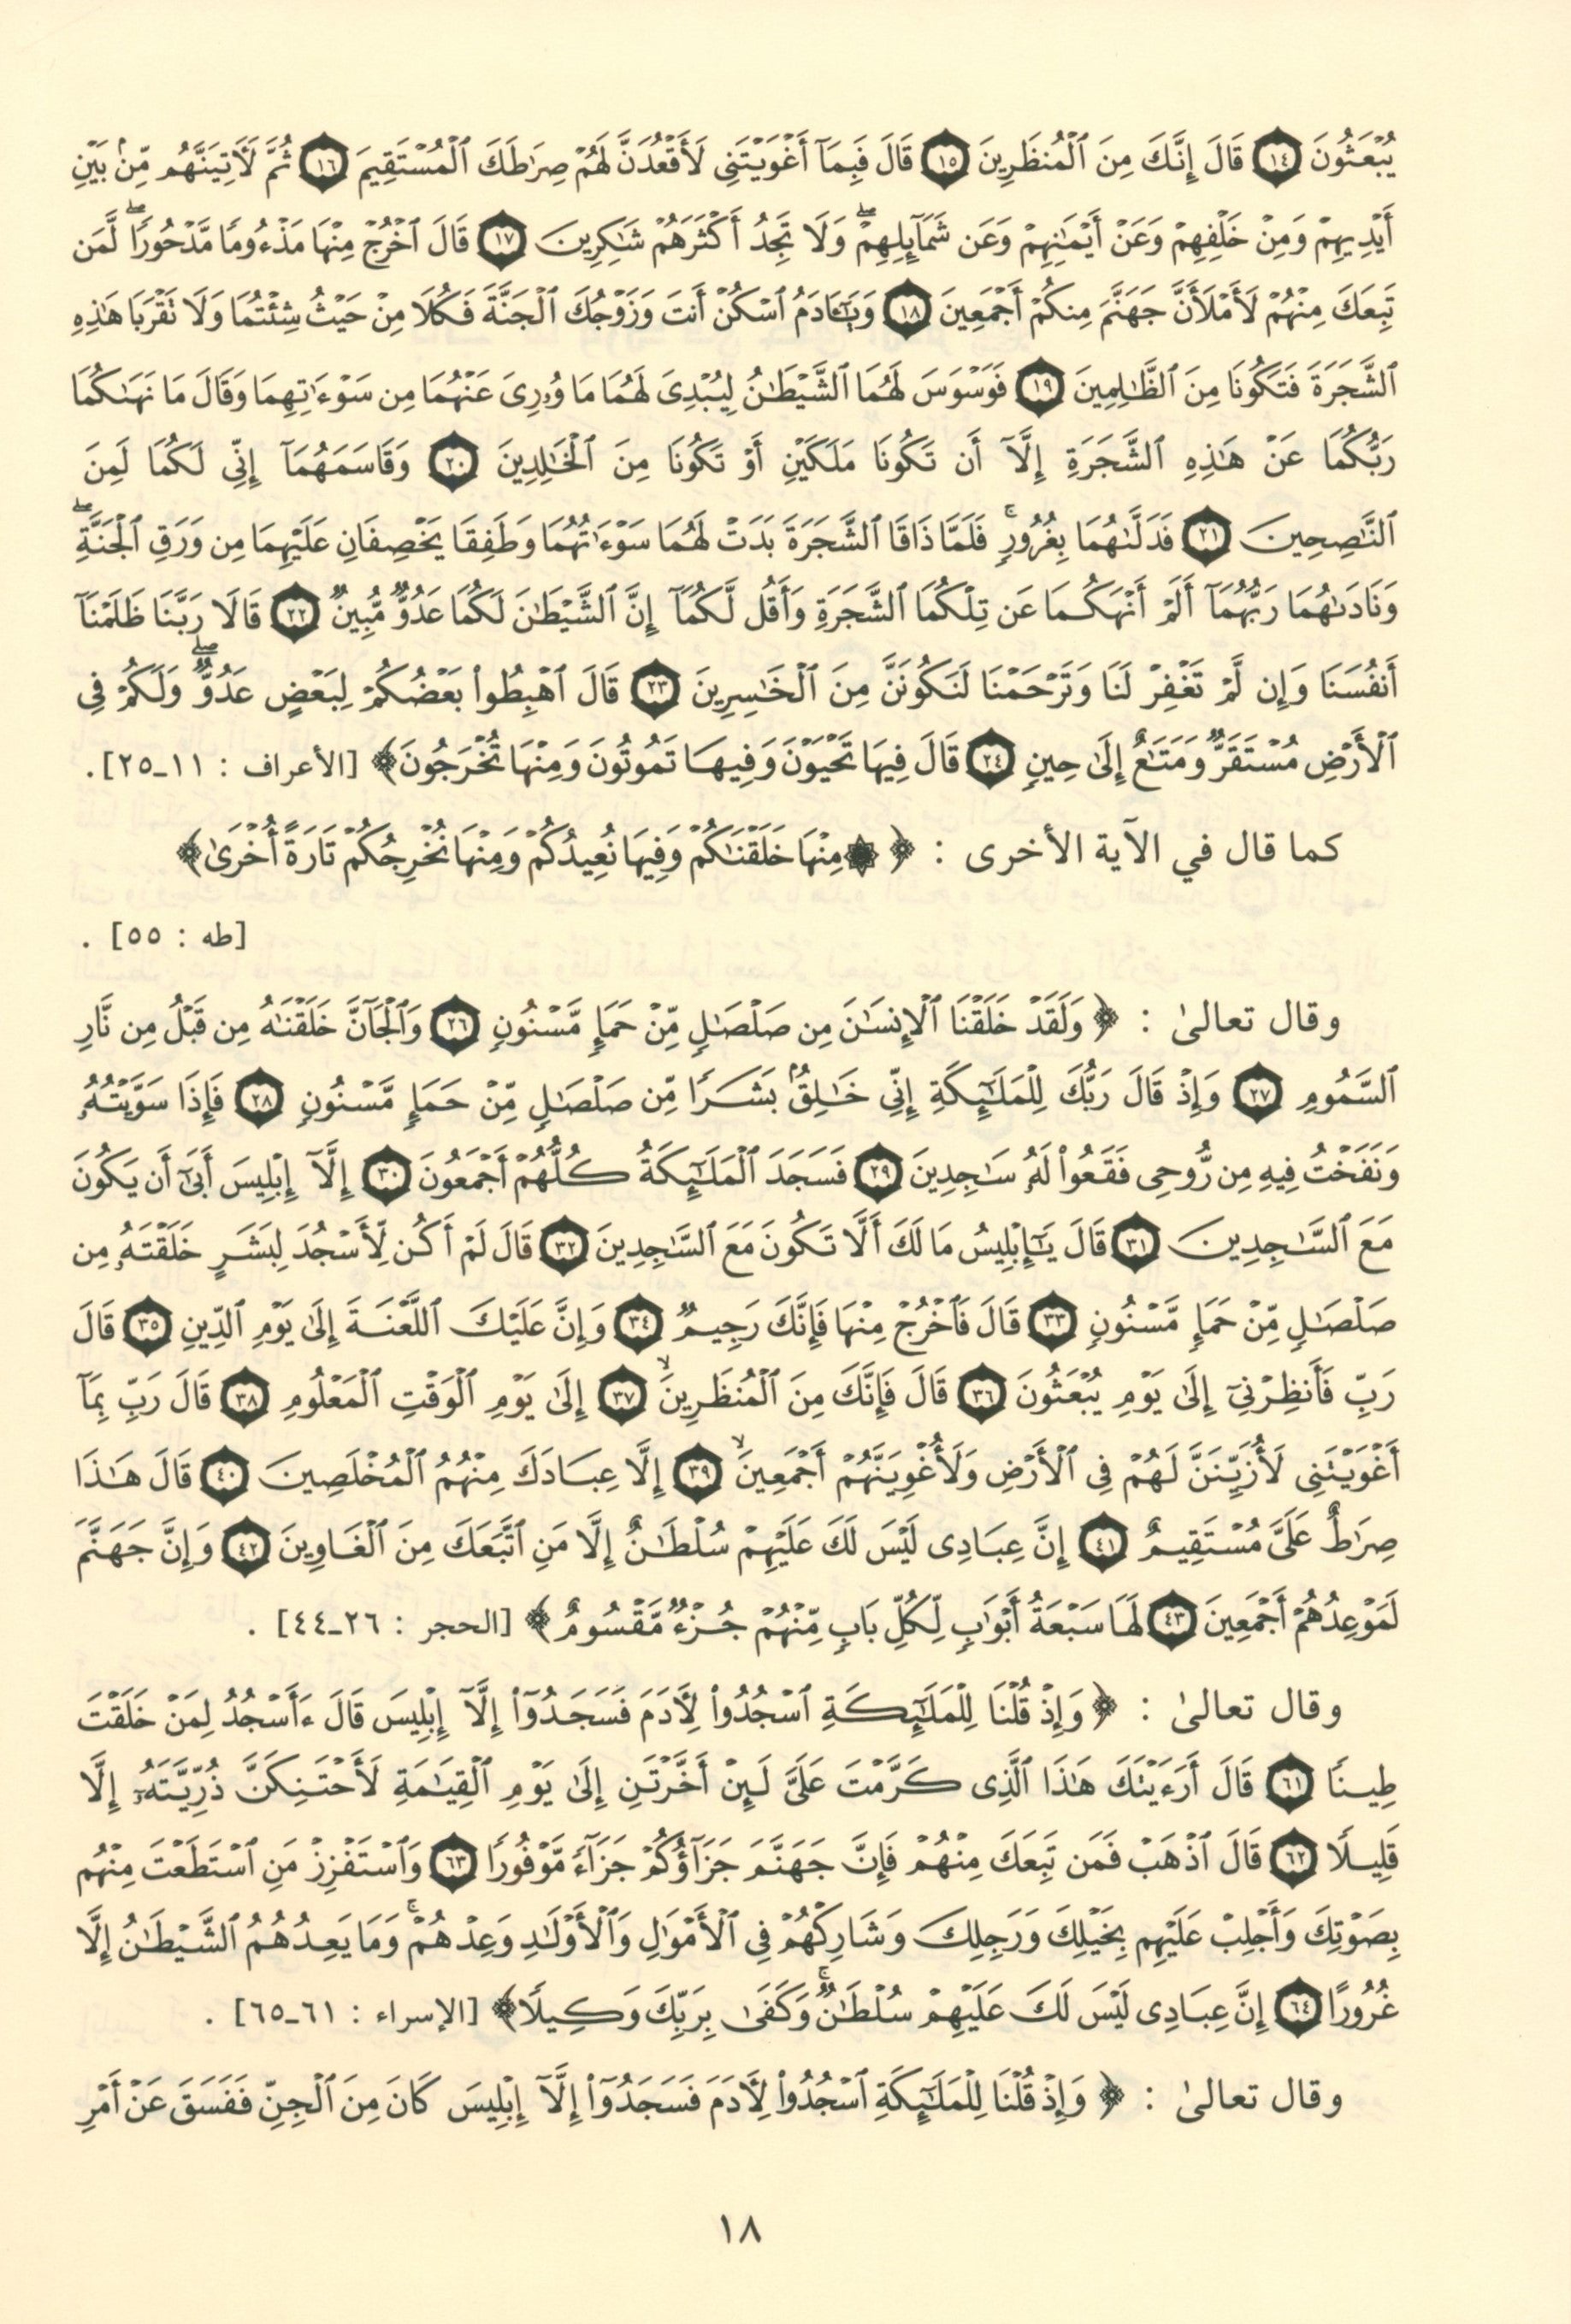 يُبْعَثُونَ ﴿١٤﴾ قَالَ إِنَّكَ مِنَ ٱلْمُنظَرِينَ ﴿١٥﴾ قَالَ فَبِمَآ أَغْوَيْتَنِى لَأَقْعُدَنَّ لَهُمْ صِرَٰطَكَ ٱلْمُسْتَقِيمَ ﴿١٦﴾ ثُمَّ لَأَتِيَنَّهُم مِّنۢ بَيْنِ
أَيْدِيهِمْ وَمِنْ خَلْفِهِمْ وَعَنْ أَيْمَٰنِهِمْ وَعَن شَمَآئِلِهِمْ ۖ وَلَا تَجِدُ أَكْثَرَهُمْ شَٰكِرِينَ ﴿١٧﴾ قَالَ ٱخْرُجْ مِنْهَا مَذْءُومًا مَّدْحُورًا ۖ لَّمَن
تَبِعَكَ مِنْهُمْ لَأَمْلَأَنَّ جَهَنَّمَ مِنكُمْ أَجْمَعِينَ ﴿١٨﴾ وَيَٰٓـَٔادَمُ ٱسْكُنْ أَنتَ وَزَوْجُكَ ٱلْجَنَّةَ فَكُلَا مِنْ حَيْثُ شِئْتُمَا وَلَا تَقْرَبَا هَٰذِهِ
ٱلشَّجَرَةَ فَتَكُونَا مِنَ ٱلظَّٰلِمِينَ ﴿١٩﴾ فَوَسْوَسَ لَهُمَا ٱلشَّيْطَٰنُ لِيُبْدِىَ لَهُمَا مَا وُۥرِىَ عَنْهُمَا مِن سَوْءَٰتِهِمَا وَقَالَ مَا نَهَىٰكُمَا
رَبُّكُمَا عَنْ هَٰذِهِ ٱلشَّجَرَةِ إِلَّآ أَن تَكُونَا مَلَكَيْنِ أَوْ تَكُونَا مِنَ ٱلْخَٰلِدِينَ ﴿٢٠﴾ وَقَاسَمَهُمَآ إِنِّى لَكُمَا لَمِنَ
ٱلنَّٰصِحِينَ ﴿٢١﴾ فَدَلَّىٰهُمَا بِغُرُورٍ ۚ فَلَمَّا ذَاقَا ٱلشَّجَرَةَ بَدَتْ لَهُمَا سَوْءَٰتُهُمَا وَطَفِقَا يَخْصِفَانِ عَلَيْهِمَا مِن وَرَقِ ٱلْجَنَّةِ ۖ
وَنَادَىٰهُمَا رَبُّهُمَآ أَلَمْ أَنْهَكُمَا عَن تِلْكُمَا ٱلشَّجَرَةِ وَأَقُل لَّكُمَآ إِنَّ ٱلشَّيْطَٰنَ لَكُمَا عَدُوٌّ مُّبِينٌ ﴿٢٢﴾ قَالَا رَبَّنَا ظَلَمْنَآ
أَنفُسَنَا وَإِن لَّمْ تَغْفِرْ لَنَا وَتَرْحَمْنَا لَنَكُونَنَّ مِنَ ٱلْخَٰسِرِينَ ﴿٢٣﴾ قَالَ ٱهْبِطُوا۟ بَعْضُكُمْ لِبَعْضٍ عَدُوٌّ ۖ وَلَكُمْ فِى
ٱلْأَرْضِ مُسْتَقَرٌّ وَمَتَٰعٌ إِلَىٰ حِينٍ ﴿٢٤﴾ قَالَ فِيهَا تَحْيَوْنَ وَفِيهَا تَمُوتُونَ وَمِنْهَا تُخْرَجُونَ﴾ [الأعراف : ١١ـ٢٥].
كما قال في الآية الأخرى : ﴿ ۞ مِنْهَا خَلَقْنَٰكُمْ وَفِيهَا نُعِيدُكُمْ وَمِنْهَا نُخْرِجُكُمْ تَارَةً أُخْرَىٰ﴾
[طه : ٥٥] .
وقال تعالىٰ : ﴿ وَلَقَدْ خَلَقْنَا ٱلْإِنسَٰنَ مِن صَلْصَٰلٍ مِّنْ حَمَإٍ مَّسْنُونٍ ﴿٢٦﴾ وَٱلْجَآنَّ خَلَقْنَٰهُ مِن قَبْلُ مِن نَّارِ
ٱلسَّمُومِ ﴿٢٧﴾ وَإِذْ قَالَ رَبُّكَ لِلْمَلَٰٓئِكَةِ إِنِّى خَٰلِقٌۢ بَشَرًا مِّن صَلْصَٰلٍ مِّنْ حَمَإٍ مَّسْنُونٍ ﴿٢٨﴾ فَإِذَا سَوَّيْتُهُۥ
وَنَفَخْتُ فِيهِ مِن رُّوحِى فَقَعُوا۟ لَهُۥ سَٰجِدِينَ ﴿٢٩﴾ فَسَجَدَ ٱلْمَلَٰٓئِكَةُ كُلُّهُمْ أَجْمَعُونَ ﴿٣٠﴾ إِلَّآ إِبْلِيسَ أَبَىٰٓ أَن يَكُونَ
مَعَ ٱلسَّٰجِدِينَ ﴿٣١﴾ قَالَ يَٰٓإِبْلِيسُ مَا لَكَ أَلَّا تَكُونَ مَعَ ٱلسَّٰجِدِينَ ﴿٣٢﴾ قَالَ لَمْ أَكُن لِّأَسْجُدَ لِبَشَرٍ خَلَقْتَهُۥ مِن
صَلْصَٰلٍ مِّنْ حَمَإٍ مَّسْنُونٍ ﴿٣٣﴾ قَالَ فَٱخْرُجْ مِنْهَا فَإِنَّكَ رَجِيمٌ ﴿٣٤﴾ وَإِنَّ عَلَيْكَ ٱللَّعْنَةَ إِلَىٰ يَوْمِ ٱلدِّينِ ﴿٣٥﴾ قَالَ
رَبِّ فَأَنظِرْنِىٓ إِلَىٰ يَوْمِ يُبْعَثُونَ ﴿٣٦﴾ قَالَ فَإِنَّكَ مِنَ ٱلْمُنظَرِينَ ۙ ﴿٣٧﴾ إِلَىٰ يَوْمِ ٱلْوَقْتِ ٱلْمَعْلُومِ ﴿٣٨﴾ قَالَ رَبِّ بِمَآ
أَغْوَيْتَنِى لَأُزَيِّنَنَّ لَهُمْ فِى ٱلْأَرْضِ وَلَأُغْوِيَنَّهُمْ أَجْمَعِينَ ۙ ﴿٣٩﴾ إِلَّا عِبَادَكَ مِنْهُمُ ٱلْمُخْلَصِينَ ﴿٤٠﴾ قَالَ هَٰذَا
صِرَٰطٌ عَلَىَّ مُسْتَقِيمٌ ﴿٤١﴾ إِنَّ عِبَادِى لَيْسَ لَكَ عَلَيْهِمْ سُلْطَٰنٌ إِلَّا مَنِ ٱتَّبَعَكَ مِنَ ٱلْغَاوِينَ ﴿٤٢﴾ وَإِنَّ جَهَنَّمَ
لَمَوْعِدُهُمْ أَجْمَعِينَ ﴿٤٣﴾ لَهَا سَبْعَةُ أَبْوَٰبٍ لِّكُلِّ بَابٍ مِّنْهُمْ جُزْءٌ مَّقْسُومٌ ﴾ [الحجر : ٢٦ـ٤٤] .
وقال تعالىٰ : ﴿ وَإِذْ قُلْنَا لِلْمَلَٰٓئِكَةِ ٱسْجُدُوا۟ لِأَدَمَ فَسَجَدُوٓا۟ إِلَّآ إِبْلِيسَ قَالَ ءَأَسْجُدُ لِمَنْ خَلَقْتَ
طِينًا ﴿٦١﴾ قَالَ أَرَءَيْتَكَ هَٰذَا ٱلَّذِى كَرَّمْتَ عَلَىَّ لَئِنْ أَخَّرْتَنِ إِلَىٰ يَوْمِ ٱلْقِيَٰمَةِ لَأَحْتَنِكَنَّ ذُرِّيَّتَهُۥٓ إِلَّا
قَلِيلًا ﴿٦٢﴾ قَالَ ٱذْهَبْ فَمَن تَبِعَكَ مِنْهُمْ فَإِنَّ جَهَنَّمَ جَزَآؤُكُمْ جَزَآءً مَّوْفُورًا ﴿٦٣﴾ وَٱسْتَفْزِزْ مَنِ ٱسْتَطَعْتَ مِنْهُم
بِصَوْتِكَ وَأَجْلِبْ عَلَيْهِم بِخَيْلِكَ وَرَجِلِكَ وَشَارِكْهُمْ فِى ٱلْأَمْوَٰلِ وَٱلْأَوْلَٰدِ وَعِدْهُمْ ۚ وَمَا يَعِدُهُمُ ٱلشَّيْطَٰنُ إِلَّا
غُرُورًا ﴿٦٤﴾ إِنَّ عِبَادِى لَيْسَ لَكَ عَلَيْهِمْ سُلْطَٰنٌ ۚ وَكَفَىٰ بِرَبِّكَ وَكِيلًا﴾ [الإسراء : ٦١ـ٦٥] .
وقال تعالىٰ : ﴿ وَإِذْ قُلْنَا لِلْمَلَٰٓئِكَةِ ٱسْجُدُوا۟ لِأَدَمَ فَسَجَدُوٓا۟ إِلَّآ إِبْلِيسَ كَانَ مِنَ ٱلْجِنِّ فَفَسَقَ عَنْ أَمْرِ
١٨